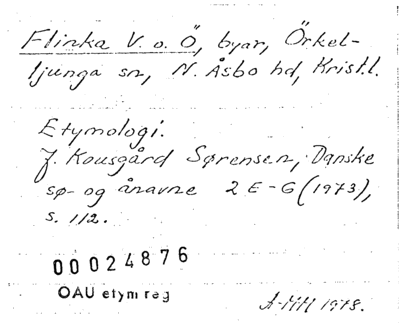 Flinka V. o. Ö, byar, Örkel-
ljunga sn, N. Åsbo hd, Krist.l.
Etymologi.
J. Kousgård Sørensen, Danske
sø- og ånavne 2 E-G (1973),
s. 112.
00024876
OAU etym reg
A-MH 1978.